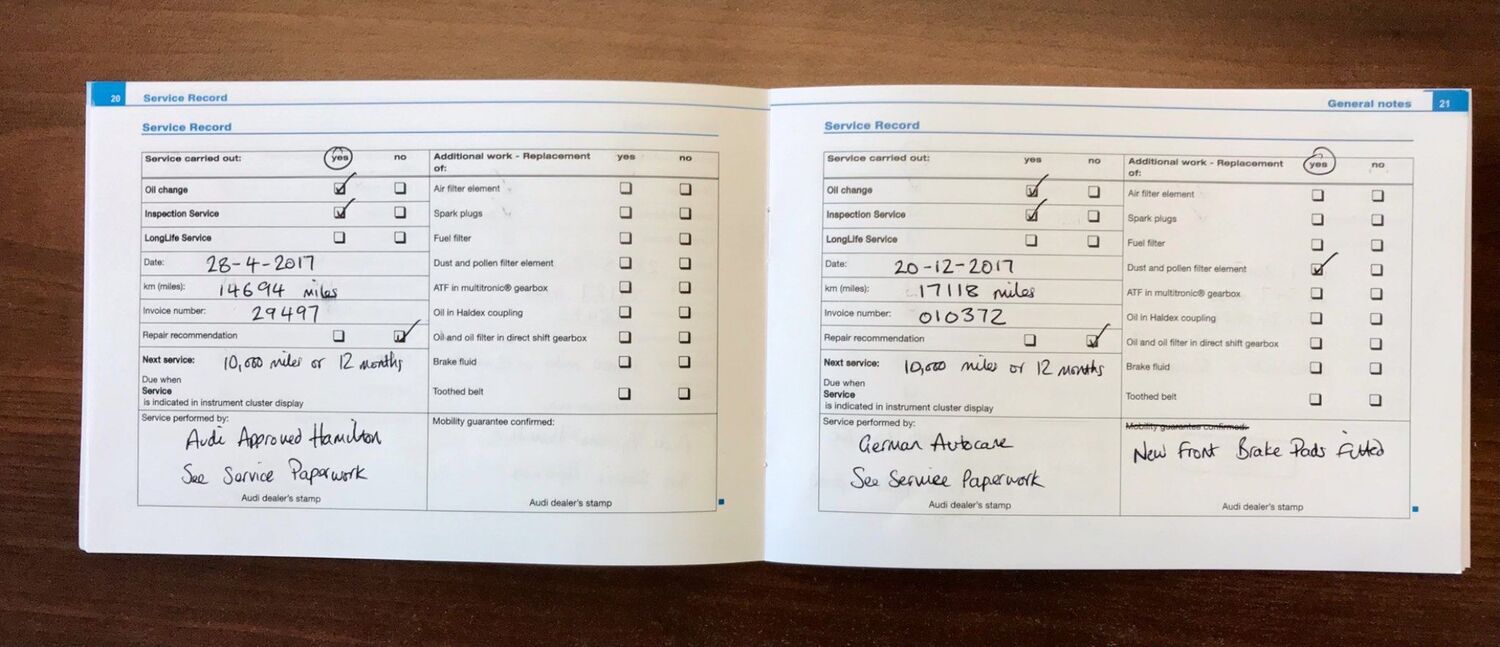 20 Service Record
Service Record
Service carried out: yes no
Oil change
Inspection Service
LongLife Service
Date: 28-4-2017
km (miles): 14694 miles
Invoice number: 29497
Repair recommendation
Next service: 10,000 miles or 12 months
Due when
Service
is indicated in instrument cluster display
Service performed by:
Audi Approved Hamilton
See Service Paperwork
Audi dealer's stamp
Additional work - Replacement yes no
of:
Air filter element
Spark plugs
Fuel filter
Dust and pollen filter element
ATF in multitronic® gearbox
Oil in Haldex coupling
Oil and oil filter in direct shift gearbox
Brake fluid
Toothed belt
Mobility guarantee confirmed:
Audi dealer's stamp
General notes 21
Service Record
Service carried out: yes no
Oil change
Inspection Service
LongLife Service
Date: 20-12-2017
km (miles): 17118 miles
Invoice number: 010372
Repair recommendation
Next service: 10,000 miles or 12 months
Due when
Service
is indicated in instrument cluster display
Service performed by:
German Autocare
See Service Paperwork
Audi dealer's stamp
Additional work - Replacement yes no
of:
Air filter element
Spark plugs
Fuel filter
Dust and pollen filter element
ATF in multitronic® gearbox
Oil in Haldex coupling
Oil and oil filter in direct shift gearbox
Brake fluid
Toothed belt
Mobility guarantee confirmed:
New Front Brake Pads fitted
Audi dealer's stamp